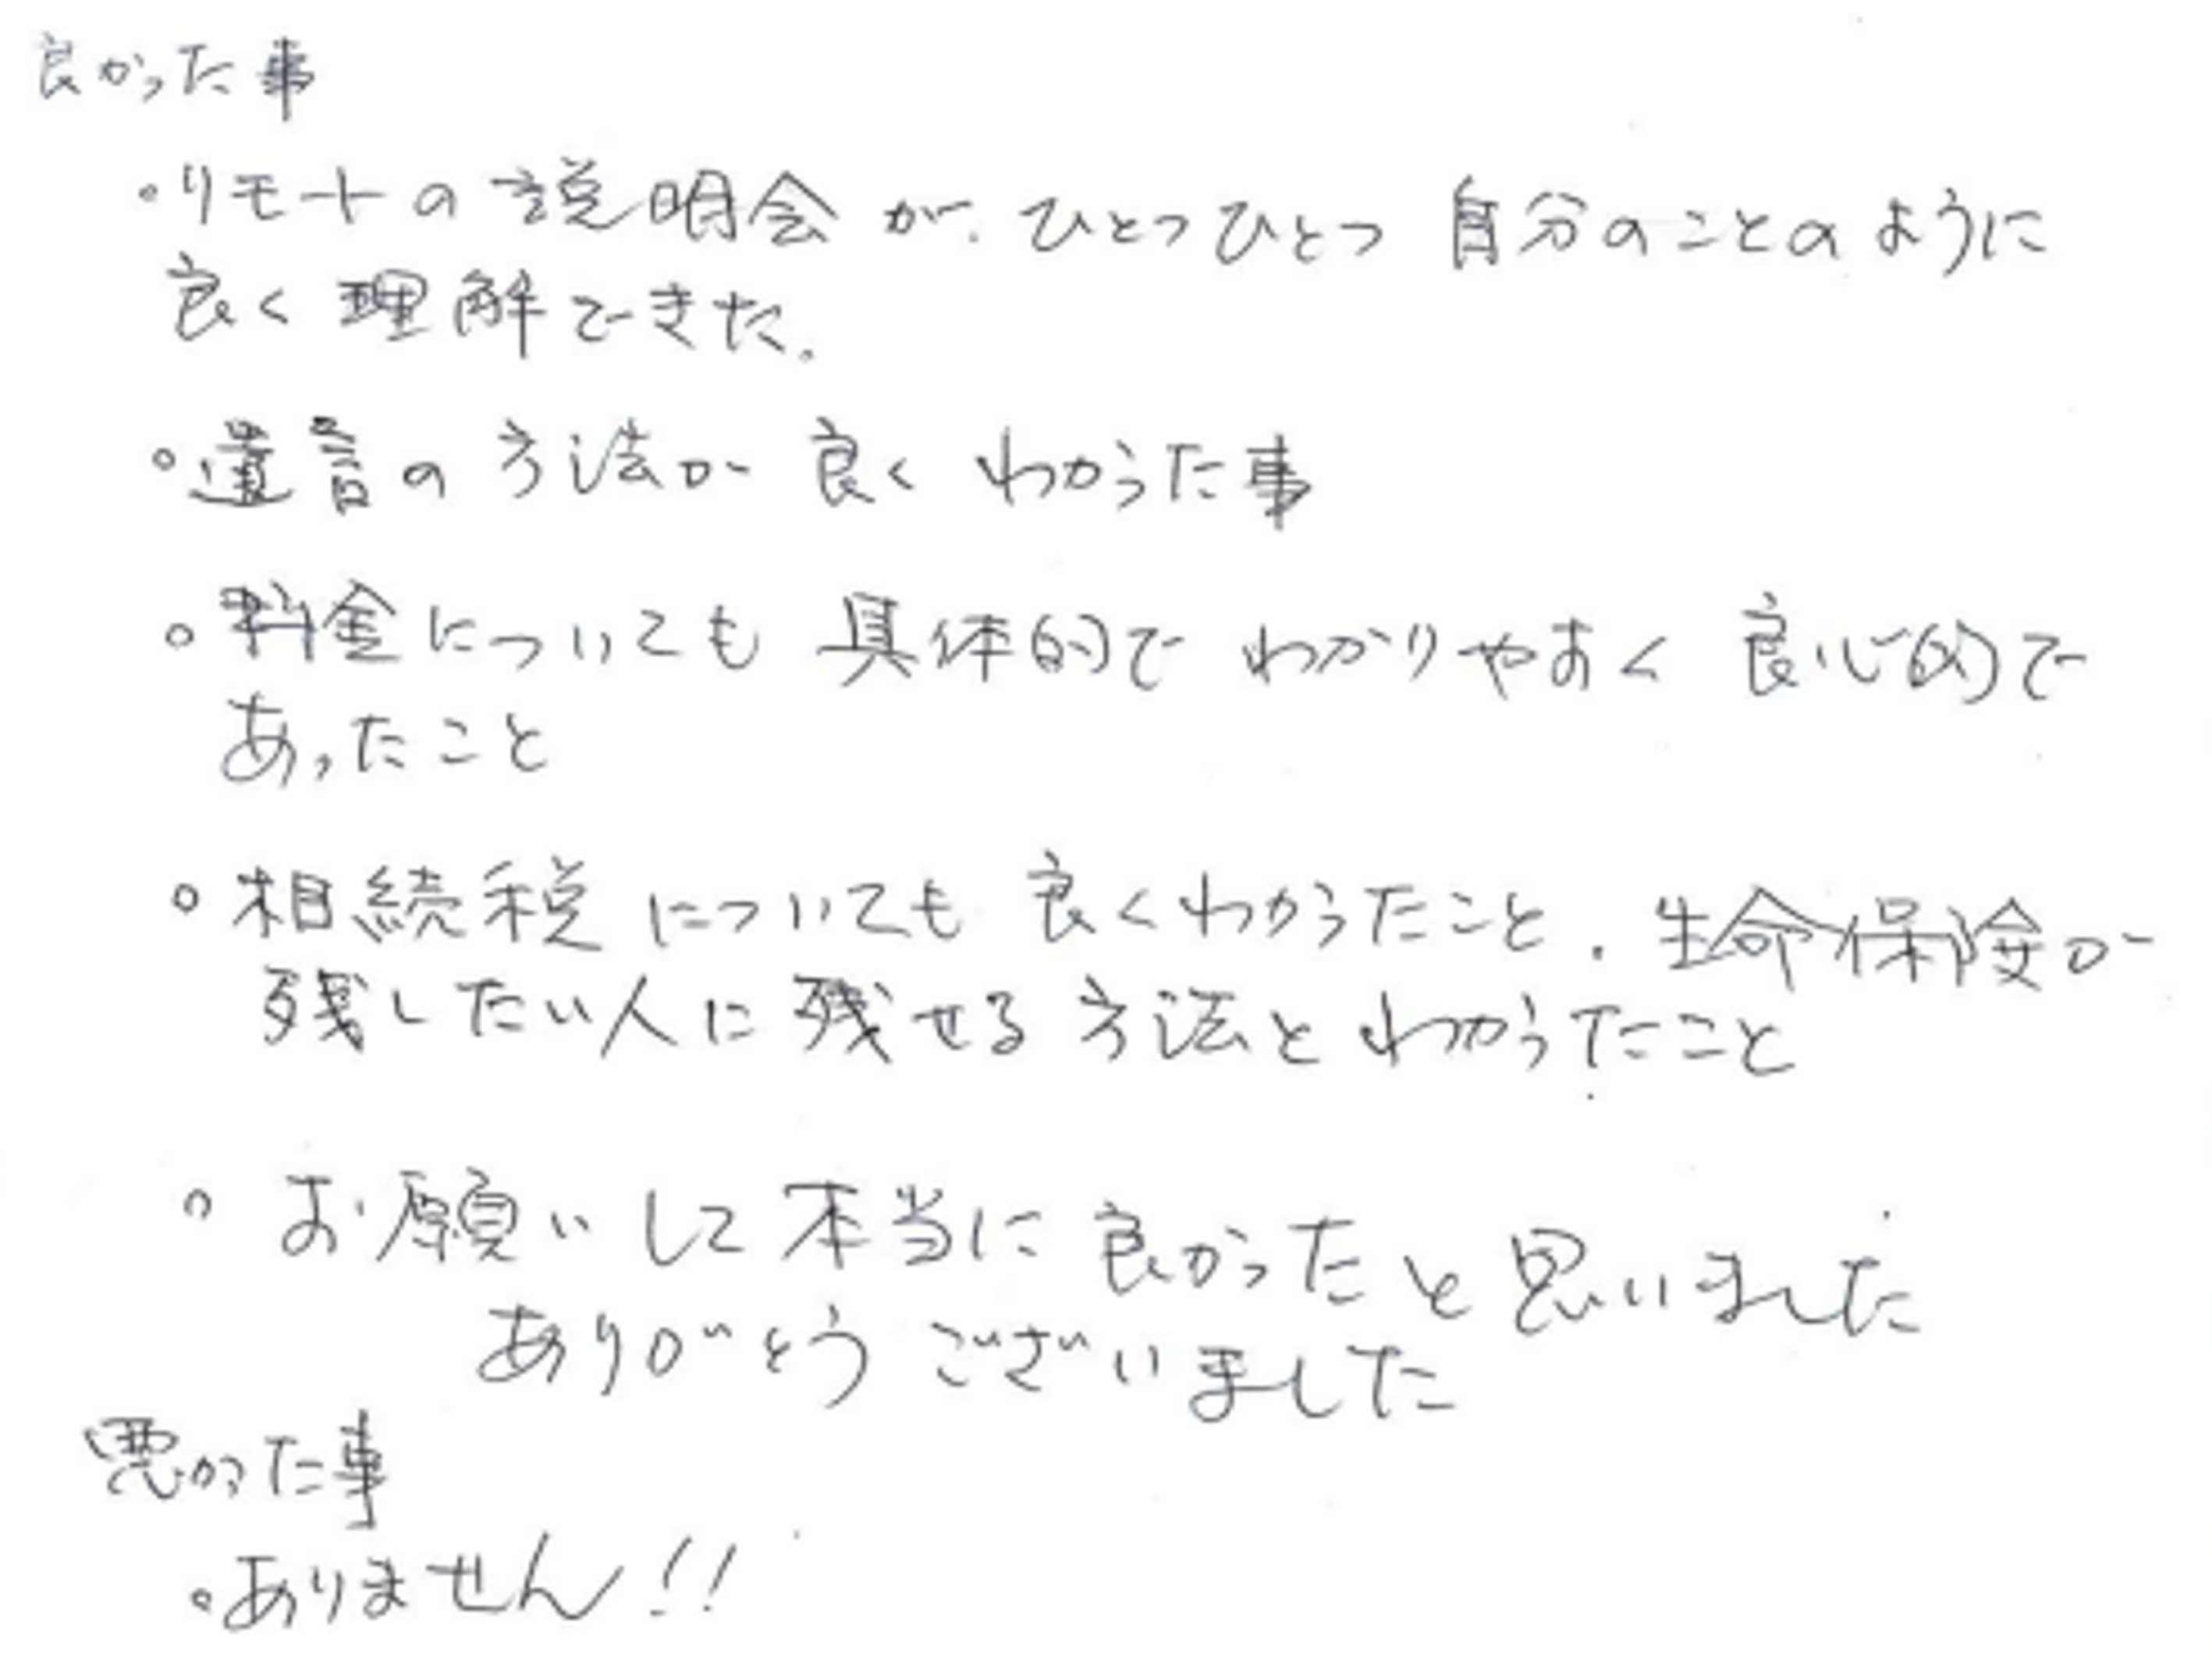 良かった事
・リモートの説明会が、ひとつひとつ自分のことのように
良く理解できた。
○遺言の方法が良くわかった事
○料金についても具体的でわかりやすく良心的で
あったこと
○相続税についても良くわかったこと、生命保険が
残したい人に残せる方法とわかったこと
○お願いして本当に良かったと思いました
ありがとうございました
悪かった事
○ありません!!